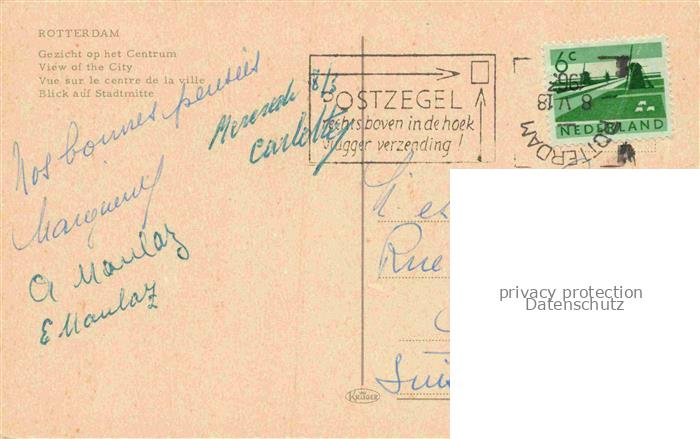 ROTTERDAM
Gezicht op het Centrum
View of the City
Vue sur le centre de la ville
Blick auf Stadtmitte
Nos bonnes pensées
8/3
Carlotta
A Maulaz
E Maulaz
POSTZEGEL
rechts boven in de hoek
vlugger verzending!
6c
NEDERLAND
ROTTERDAM
Rue
KRÜGER
privacy protection
Datenschutz